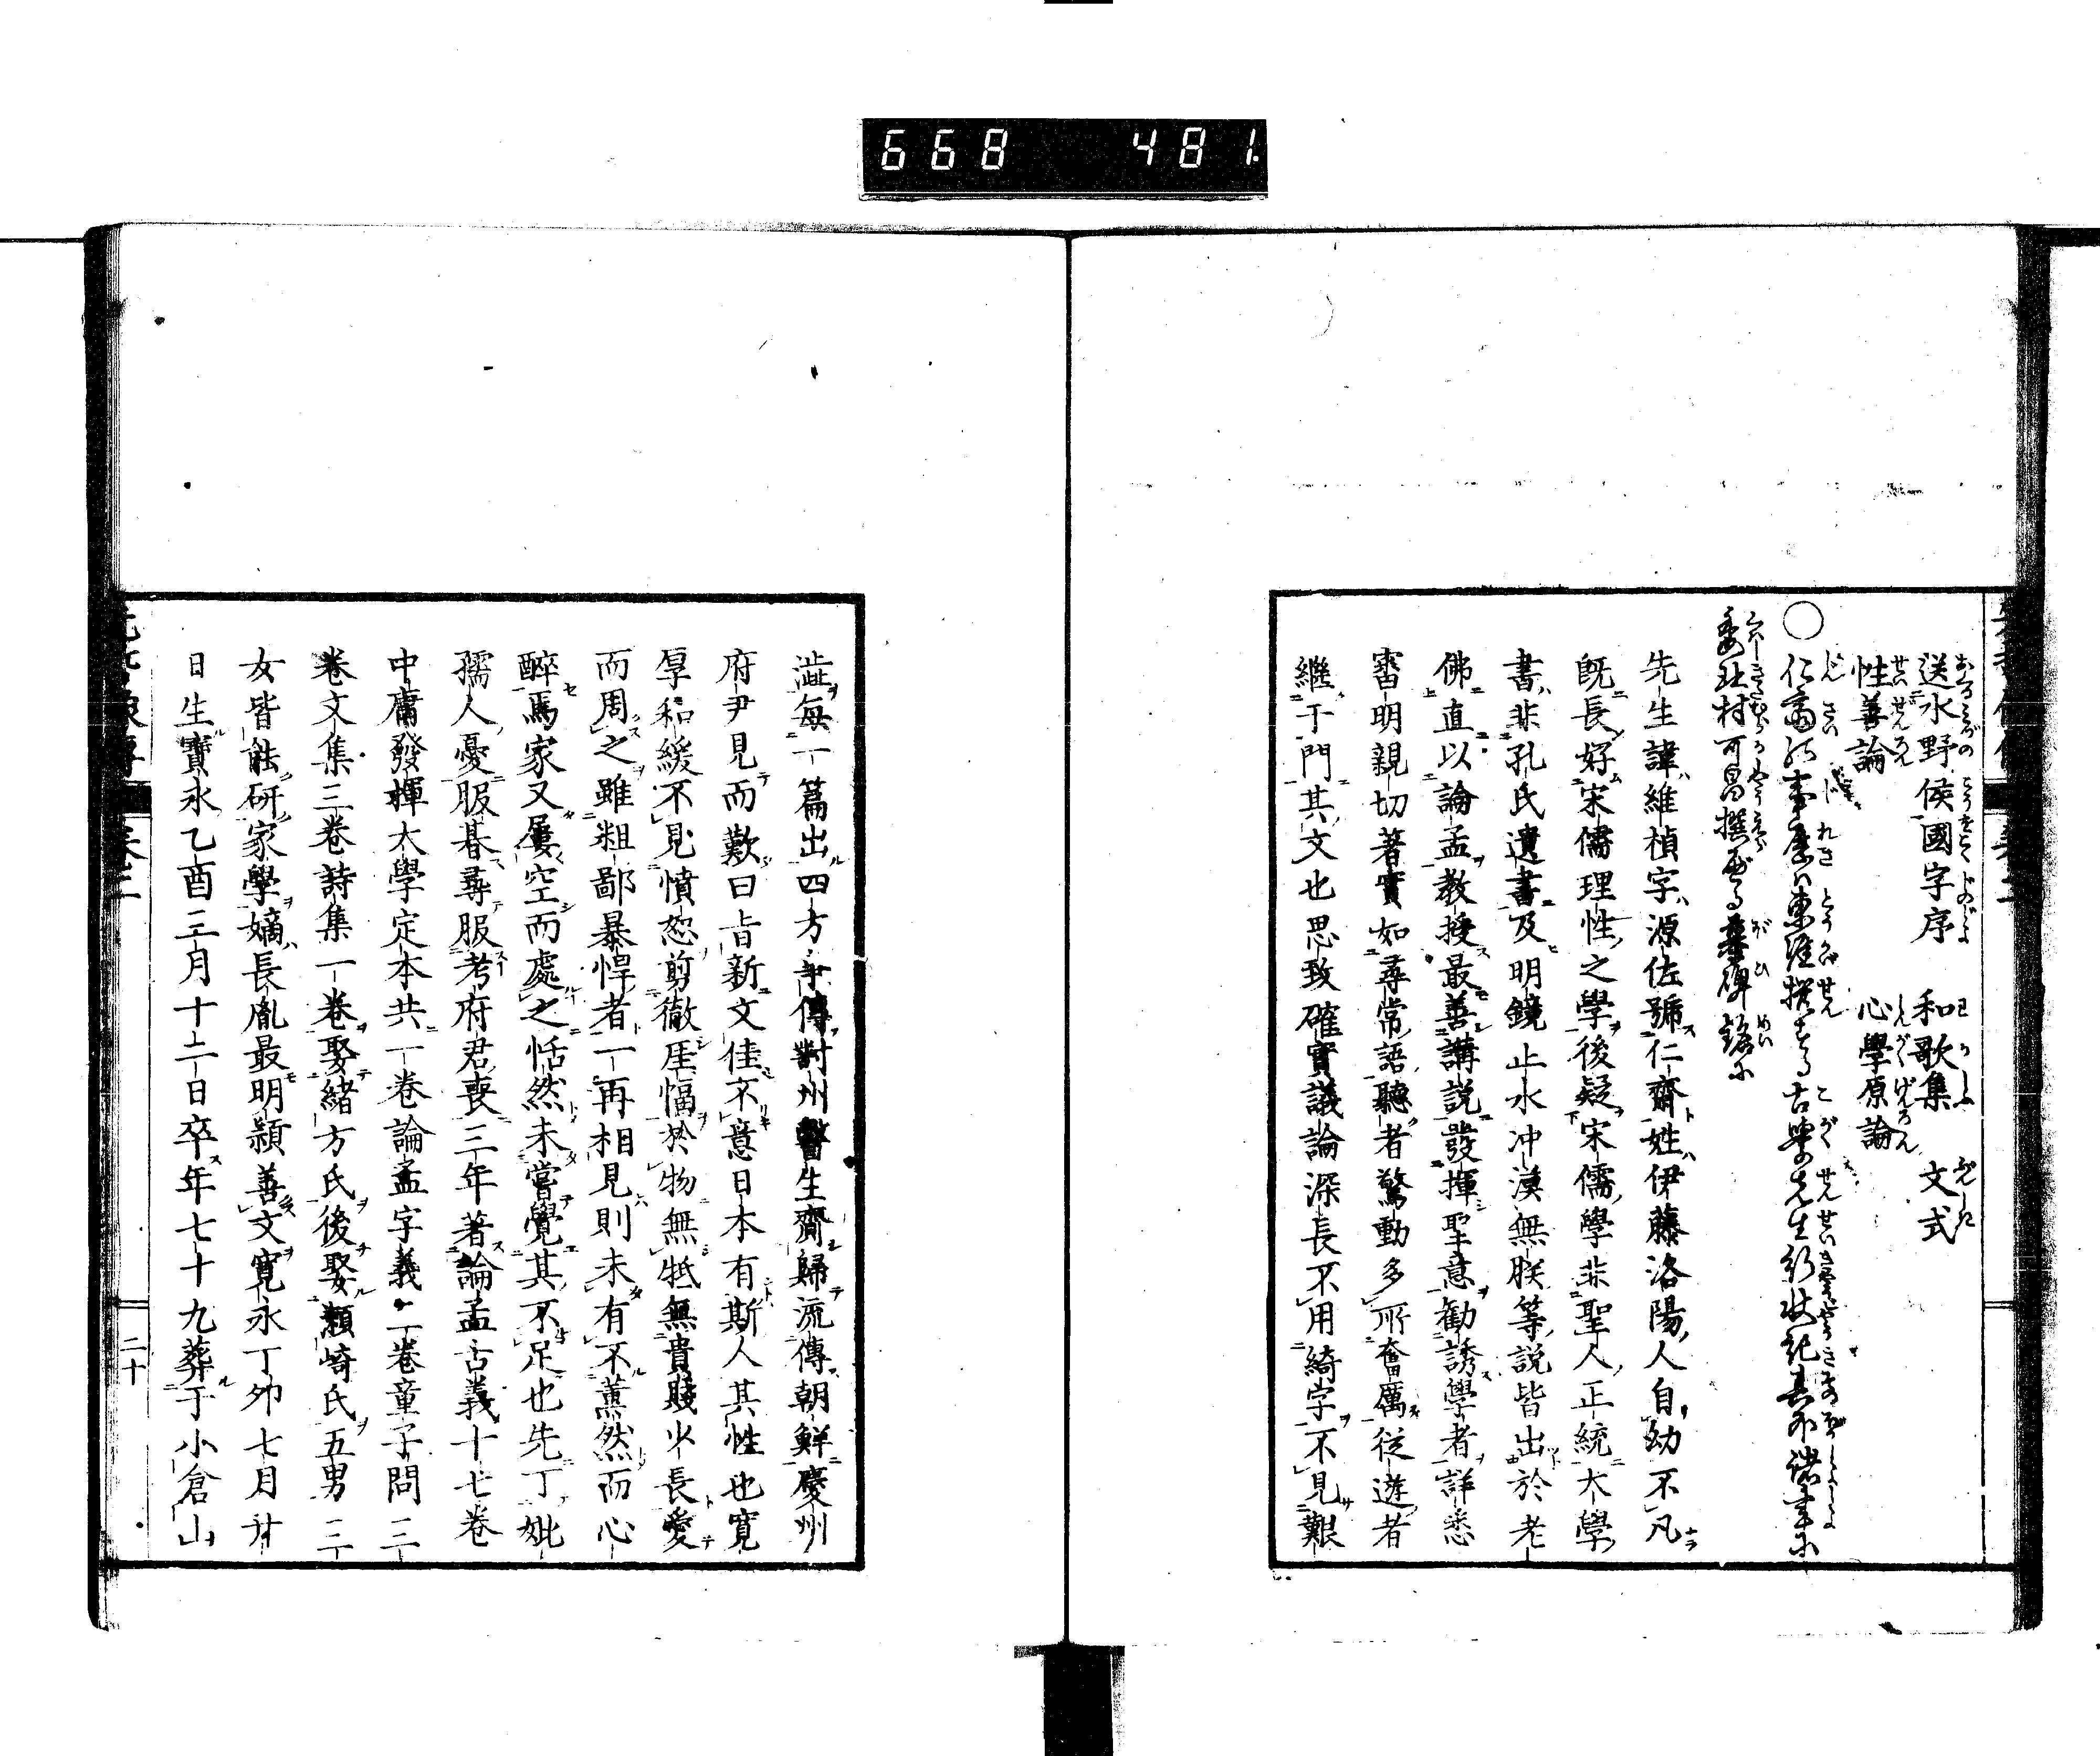 668 481
送水野侯國字序 和歌集 文式
性善論 心學原論
○仁齋の事歴は東涯撰する古學先生行状記其外諸書に
委北村可昌撰せる墓碑銘に
先生諱維楨字源佐號仁齋姓伊藤洛陽人自幼不凡
既長好宋儒理性之學後疑宋儒學非聖人正統大學
書非孔氏遺書及明鏡止水冲漠無朕等說皆出於老
佛直以論孟教授最善講説發揮聖意勸誘學者詳悉
審明親切著實如尋常語聽者驚動多所奮厲從遊者
繼于門其文也思致確實議論深長不用綺字不見艱
澁每一篇出四方爭傳對州醫生齎歸流傳朝鮮慶州
府尹見而歎曰旨新文佳不意日本有斯人其性也寬
厚和緩不見憤怒剪徹厓幅於物無牴無貴賤少長愛
而周之雖粗鄙暴悍者一再相見則未有不薰然而心
醉焉家又屢空而處之恬然未嘗覺其不足也先丁妣
孺人憂服朞尋服考府君喪三年著論孟古義十七卷
中庸發揮大學定本共一卷論孟字義二卷童子問三
卷文集三卷詩集一卷娶緒方氏後娶瀬崎氏五男三
女皆能研家學嫡長胤最明穎善文寛永丁卯七月廿
日生寶永乙酉三月十二日卒年七十九葬于小倉山
二十